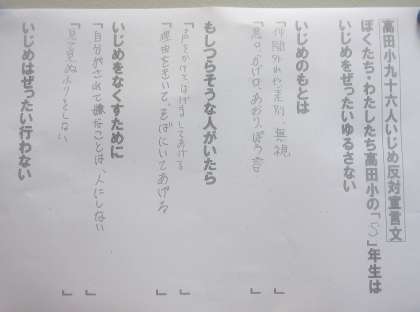 高田小九十六人いじめ反対宣言文
ぼくたち・わたしたち高田小の「5」年生は
いじめをぜったいゆるさない
いじめのもとは
「仲間外れや差別、無視」
「悪口、かげ口、あおり、ぼう言」
もしつらそうな人がいたら
「声をかけてはげましてあげる」
「理由をきいて、そばにいてあげる」
いじめをなくすために
「自分がされて嫌なことは、人にしない」
「見て見ぬふりをしない」
いじめはぜったい行わない